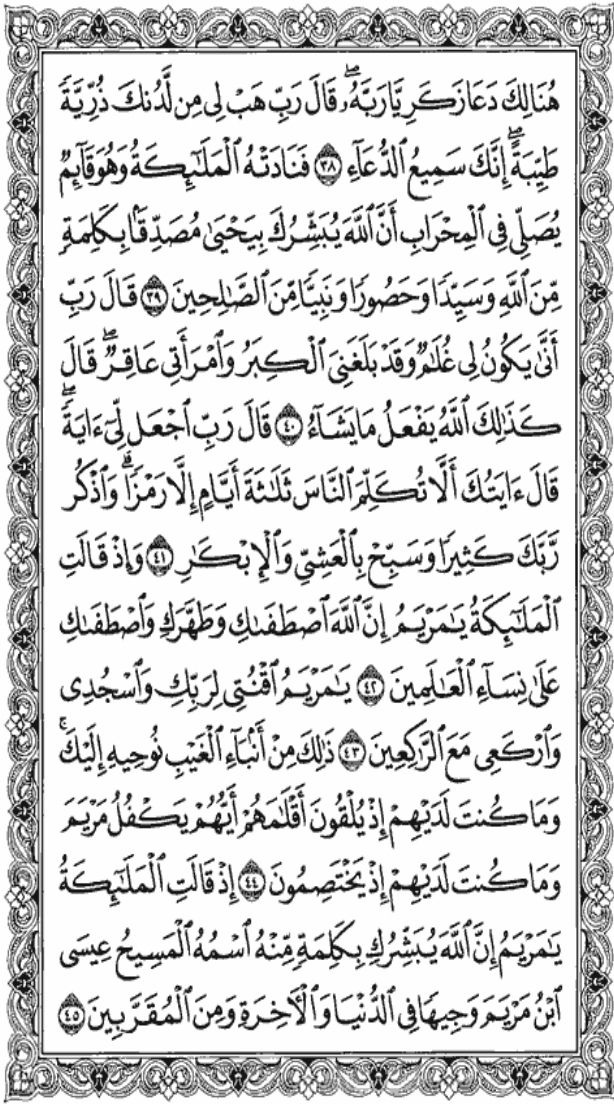 هُنَالِكَ دَعَا زَكَرِيَّا رَبَّهُۥۖ قَالَ رَبِّ هَبْ لِى مِن لَّدُنكَ ذُرِّيَّةً
طَيِّبَةًۖ إِنَّكَ سَمِيعُ ٱلدُّعَآءِ ٣٨ فَنَادَتْهُ ٱلْمَلَـٰٓئِكَةُ وَهُوَ قَآئِمٌ
يُصَلِّى فِى ٱلْمِحْرَابِ أَنَّ ٱللَّهَ يُبَشِّرُكَ بِيَحْيَىٰ مُصَدِّقًۢا بِكَلِمَةٍ
مِّنَ ٱللَّهِ وَسَيِّدًا وَحَصُورًا وَنَبِيًّا مِّنَ ٱلصَّـٰلِحِينَ ٣٩ قَالَ رَبِّ
أَنَّىٰ يَكُونُ لِى غُلَـٰمٌ وَقَدْ بَلَغَنِىَ ٱلْكِبَرُ وَٱمْرَأَتِى عَاقِرٌۖ قَالَ
كَذَٰلِكَ ٱللَّهُ يَفْعَلُ مَا يَشَآءُ ٤٠ قَالَ رَبِّ ٱجْعَل لِّىٓ ءَايَةًۖ
قَالَ ءَايَتُكَ أَلَّا تُكَلِّمَ ٱلنَّاسَ ثَلَـٰثَةَ أَيَّامٍ إِلَّا رَمْزًاۗ وَٱذْكُر
رَّبَّكَ كَثِيرًا وَسَبِّحْ بِٱلْعَشِىِّ وَٱلْإِبْكَـٰرِ ٤١ وَإِذْ قَالَتِ
ٱلْمَلَـٰٓئِكَةُ يَـٰمَرْيَمُ إِنَّ ٱللَّهَ ٱصْطَفَىٰكِ وَطَهَّرَكِ وَٱصْطَفَىٰكِ
عَلَىٰ نِسَآءِ ٱلْعَـٰلَمِينَ ٤٢ يَـٰمَرْيَمُ ٱقْنُتِى لِرَبِّكِ وَٱسْجُدِى
وَٱرْكَعِى مَعَ ٱلرَّٰكِعِينَ ٤٣ ذَٰلِكَ مِنْ أَنۢبَآءِ ٱلْغَيْبِ نُوحِيهِ إِلَيْكَۚ
وَمَا كُنتَ لَدَيْهِمْ إِذْ يُلْقُونَ أَقْلَـٰمَهُمْ أَيُّهُمْ يَكْفُلُ مَرْيَمَ
وَمَا كُنتَ لَدَيْهِمْ إِذْ يَخْتَصِمُونَ ٤٤ إِذْ قَالَتِ ٱلْمَلَـٰٓئِكَةُ
يَـٰمَرْيَمُ إِنَّ ٱللَّهَ يُبَشِّرُكِ بِكَلِمَةٍ مِّنْهُ ٱسْمُهُ ٱلْمَسِيحُ عِيسَى
ٱبْنُ مَرْيَمَ وَجِيهًا فِى ٱلدُّنْيَا وَٱلْـَٔاخِرَةِ وَمِنَ ٱلْمُقَرَّبِينَ ٤٥